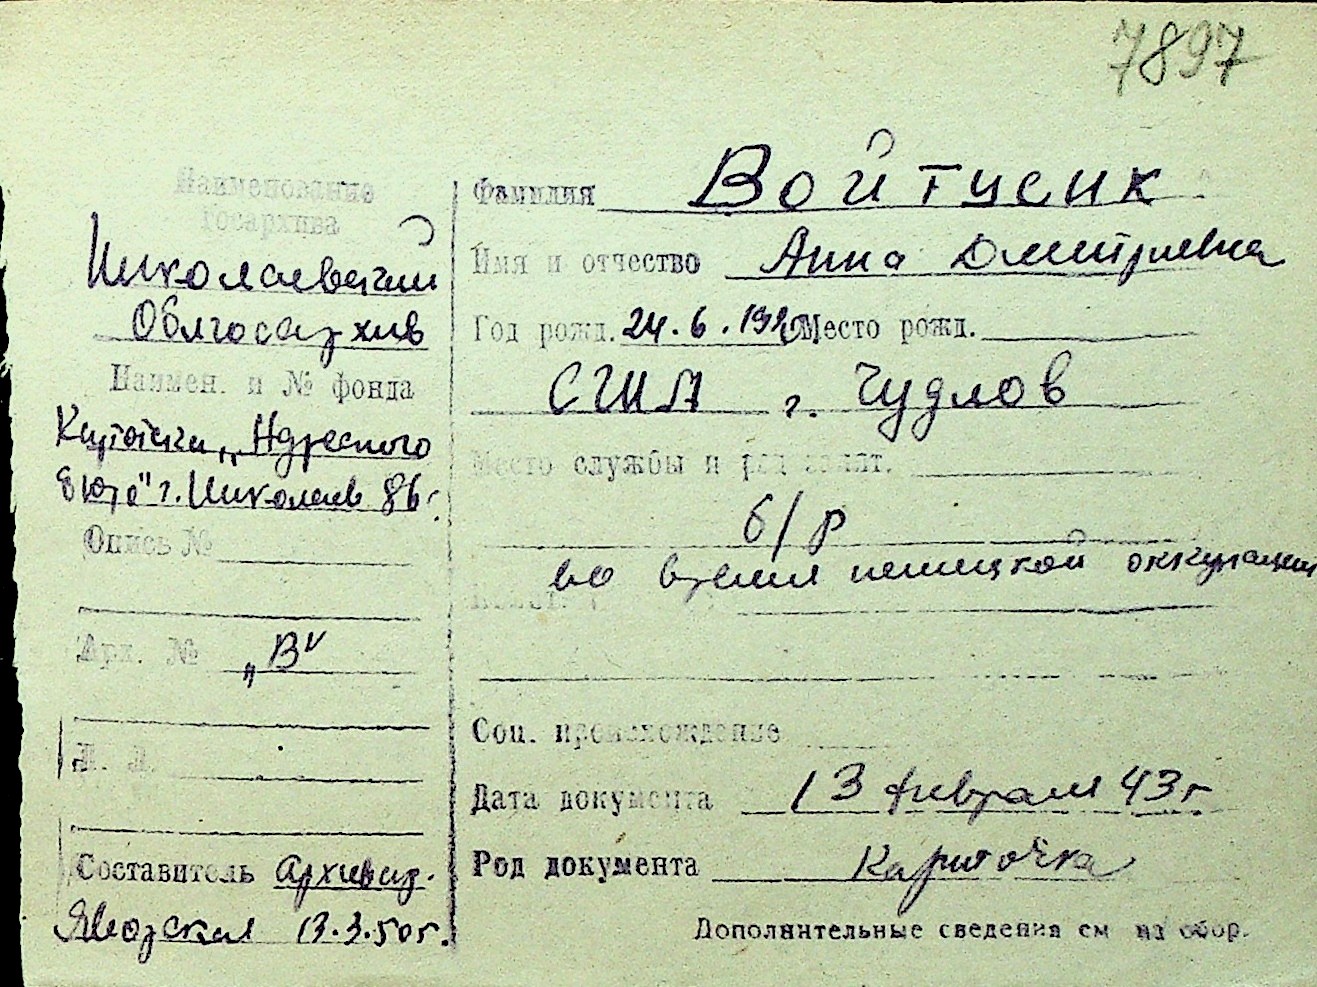 7897
Наименование
госархива
Николаевский
Облгосархив
Наимен. и № фонда
Картотеки „Адресного
бюро" г. Николаев
Опись №
Арх. № „В"
Л. Л.
Составитель Архивар.
Яворская 13.3.50 г.
Фамилия Войтусик
Имя и отчество Анна Дмитриевна
Год рожд. 24.6. Место рожд.
США г. Чудлов
Место службы и род занят.
б/р
во время немецкой оккупации
Соц. происхождение
Дата документа 13 февраля 43 г
Род документа Карточка
Дополнительные сведения см на обор.